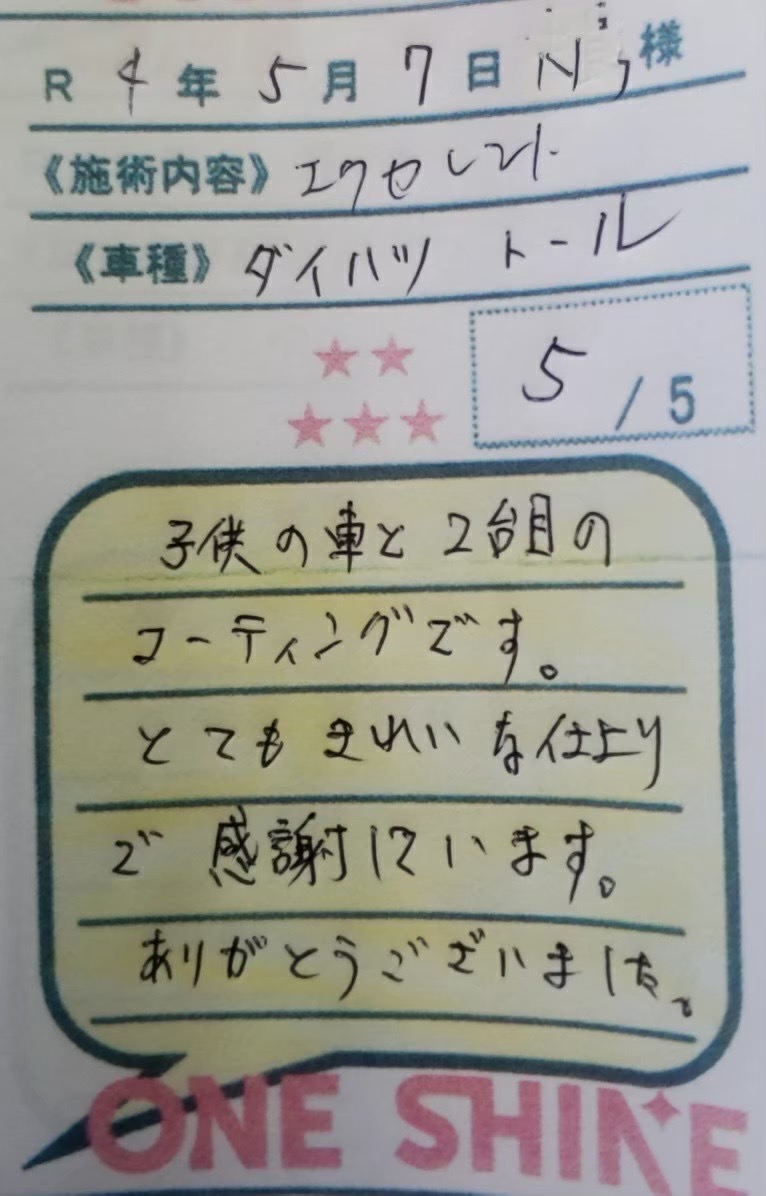 R 4年 5月 7日 様
《施術内容》エクセレント
《車種》ダイハツ トール
5 / 5
子供の車と2台目の
コーティングです。
とてもきれいな仕上り
で感謝しています。
ありがとうございました。
ONE SHINE